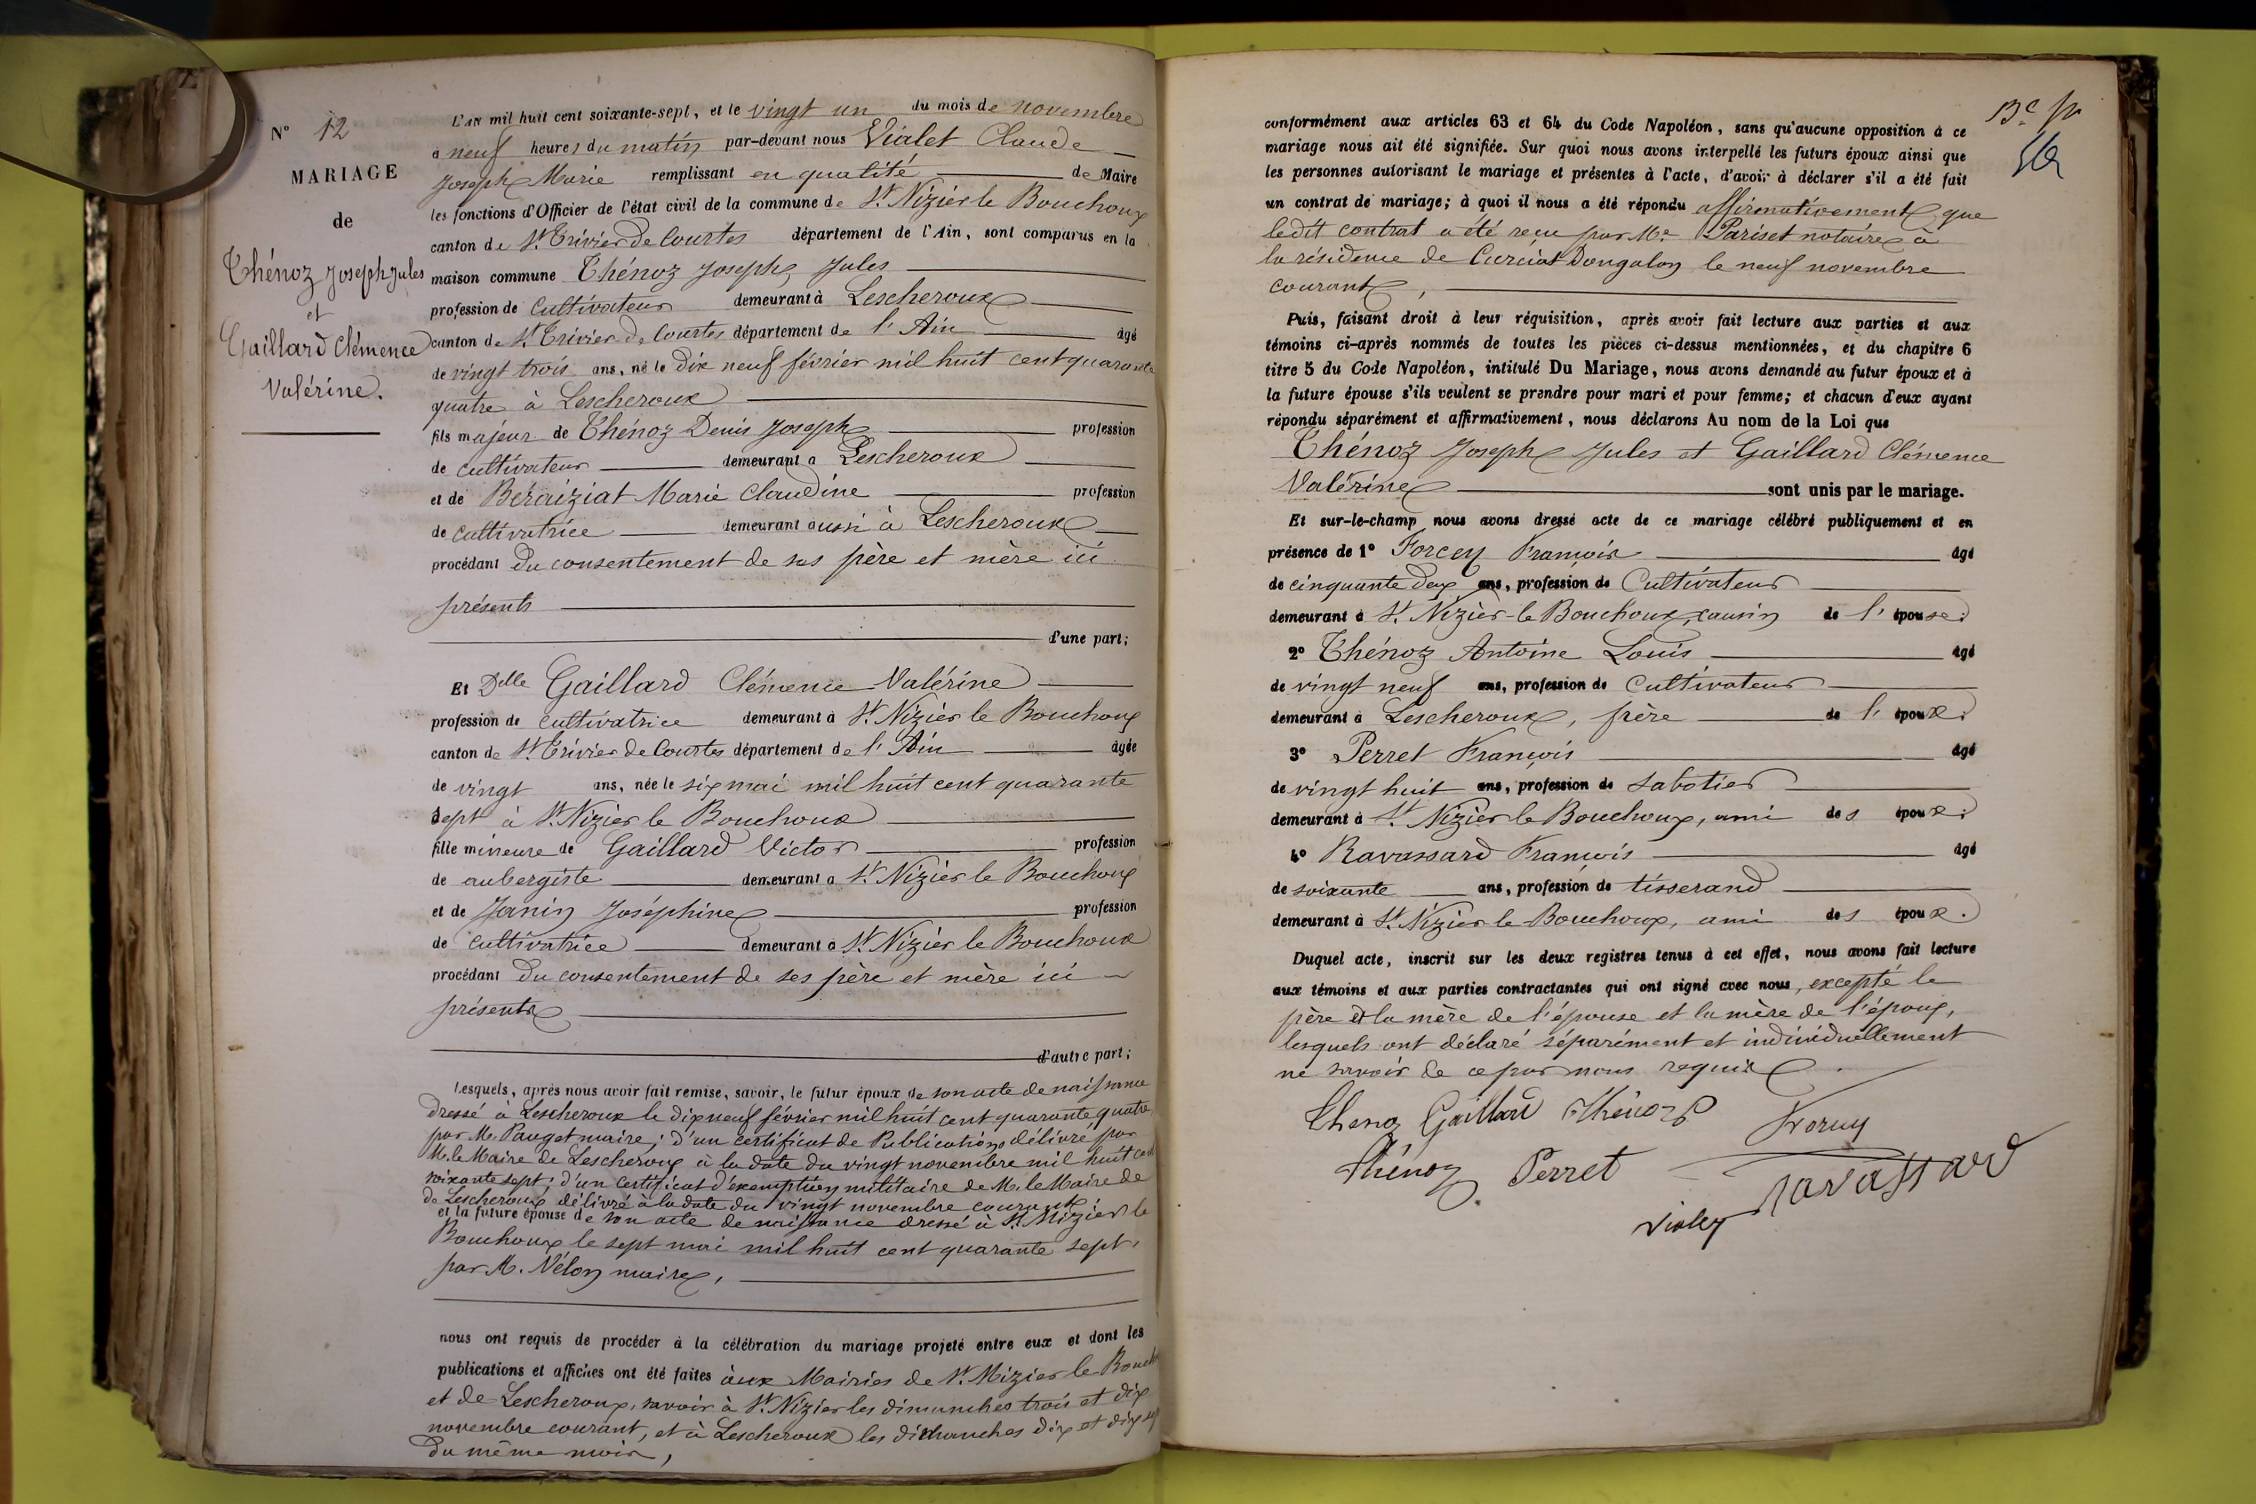 N° 12
MARIAGE
de
Thénoz Joseph Jules
et
Gaillard Clémence
Valérine.
L'an mil huit cent soixante-sept, et le vingt un du mois de novembre
à neuf heures du matin par-devant nous Vialet Claude
Joseph Marie remplissant en qualité de Maire
les fonctions d'Officier de l'état civil de la commune de St. Nizier le Bouchoux
canton de St. Trivier de Courtes département de l'Ain, sont comparus en la
maison commune Thénoz Joseph Jules
profession de cultivateur demeurant à Lescheroux
canton de St. Trivier de Courtes département de l'Ain âgé
de vingt trois ans, né le dix neuf février mil huit cent quarante
quatre à Lescheroux
fils majeur de Thénoz Denis Joseph profession
de cultivateur demeurant à Lescheroux
et de Beraiziat Marie Claudine profession
de cultivatrice demeurant aussi à Lescheroux
procédant du consentement de ses père et mère ici
présents
d'une part;
Et Delle Gaillard Clémence Valérine
profession de cultivatrice demeurant à St. Nizier le Bouchoux
canton de St. Trivier de Courtes département de l'Ain âgée
de vingt ans, née le six mai mil huit cent quarante
sept à St. Nizier le Bouchoux
fille mineure de Gaillard Victor profession
de aubergiste demeurant à St. Nizier le Bouchoux
et de Janin Joséphine profession
de cultivatrice demeurant à St. Nizier le Bouchoux
procédant du consentement de ses père et mère ici
présents
d'autre part;
Lesquels, après nous avoir fait remise, savoir, le futur époux de son acte de naissance
dressé à Lescheroux le dix neuf février mil huit cent quarante quatre
par M. Pauget maire; d'un certificat de Publications délivré par
M. le Maire de Lescheroux à la date du vingt novembre mil huit cent
soixante sept; d'un certificat d'exemption militaire de M. le Maire de
de Lescheroux délivré à la date du vingt novembre courant
et la future épouse de son acte de naissance dressé à St. Nizier le
Bouchoux le sept mai mil huit cent quarante sept,
par M. Vélon maire,
nous ont requis de procéder à la célébration du mariage projeté entre eux et dont les
publications et affiches ont été faites aux Mairies de St. Nizier le Bouch
et de Lescheroux, savoir à St. Nizier les dimanches trois et dix
novembre courant, et à Lescheroux les dimanches dix et dix sept
du même mois,
conformément aux articles 63 et 64 du Code Napoléon, sans qu'aucune opposition à ce
mariage nous ait été signifiée. Sur quoi nous avons interpellé les futurs époux ainsi que
les personnes autorisant le mariage et présentes à l'acte, d'avoir à déclarer s'il a été fait
un contrat de mariage; à quoi il nous a été répondu affirmativement que
ledit contrat a été reçu par Me. Pariset notaire à
la résidence de Curciat Dongalon le neuf novembre
courant,
Puis, faisant droit à leur réquisition, après avoir fait lecture aux parties et aux
témoins ci-après nommés de toutes les pièces ci-dessus mentionnées, et du chapitre 6
titre 5 du Code Napoléon, intitulé Du Mariage, nous avons demandé au futur époux et à
la future épouse s'ils veulent se prendre pour mari et pour femme; et chacun d'eux ayant
répondu séparément et affirmativement, nous déclarons Au nom de la Loi que
Thénoz Joseph Jules et Gaillard Clémence
Valérine sont unis par le mariage.
Et sur-le-champ nous avons dressé acte de ce mariage célébré publiquement et en
présence de 1° Forcey François âgé
de cinquante deux ans, profession de Cultivateur
demeurant à St. Nizier-le Bouchoux, cousin de l'épouse;
2° Thénoz Antoine Louis âgé
de vingt neuf ans, profession de Cultivateur
demeurant à Lescheroux, frère de l'époux;
3° Perret François âgé
de vingt huit ans, profession de sabotier
demeurant à St. Nizier le Bouchoux, ami des époux;
4° Ravassard François âgé
de soixante ans, profession de tisserand
demeurant à St. Nizier le Bouchoux, ami des époux.
Duquel acte, inscrit sur les deux registres tenus à cet effet, nous avons fait lecture
aux témoins et aux parties contractantes qui ont signé avec nous, excepté le
père et la mère de l'épouse et la mère de l'époux,
lesquels ont déclaré séparément et individuellement
ne savoir de ce par nous requis.
Thenoz Gaillard Thénoz
Thénoz Perret
Ravassard